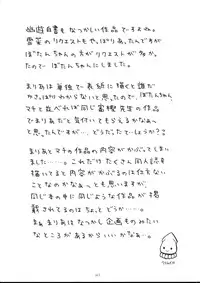 幽遊白書もなつかしい作品ですよね。
雪菜のリクエストもや、ぱりあ、たんですが
ぼたんちゃんがリクエストが多か。
たのでぼたんちゃんにしました。
まりあは単体で表紙に描くと誰だ
かさ。ぱりわからないと思、たので、ぼたんちゃん、
マチと並べれば同じ冨樫先生の作品
でまりあだと気付いてもらえるかなぁ～
と思、たんですが…、どうだ。たでしょうか？
まりあとマチの作品の内容がかぶってしまい
ました……。これだけたくさん同人誌を
描いてると内容がかぶるのは仕方ない
ことなのかなぁっとも思いますが、
同じ本の中に同じような作品が掲
載されてるのはちょっとどうか……。
まぁまりあはなつかし企画ものみたい
なところがあるからいいかなぁ～。